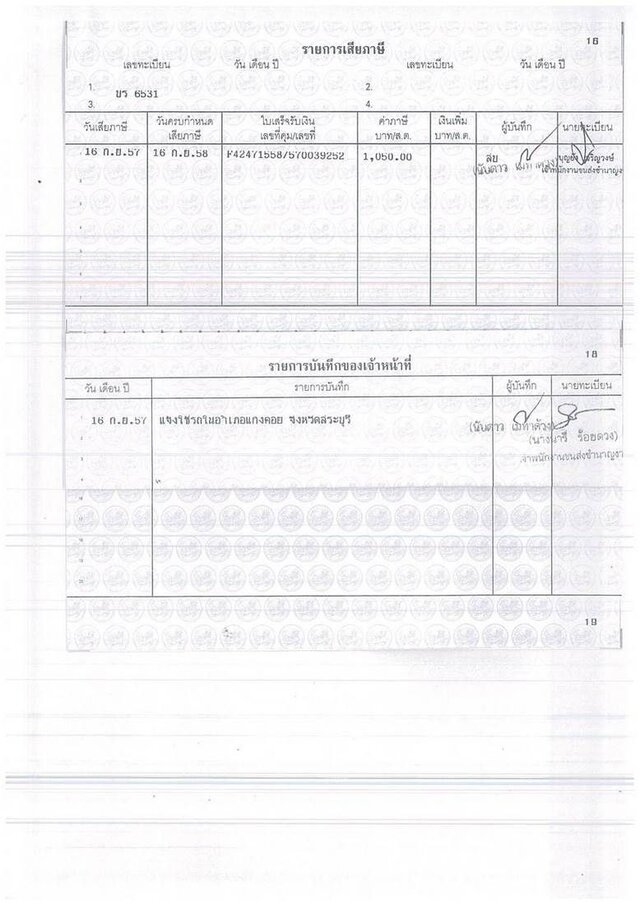 16
รายการเสียภาษี
เลขทะเบียน วัน เดือน ปี เลขทะเบียน วัน เดือน ปี
1. 2.
ขร 6531
3. 4.
วันเสียภาษี วันครบกำหนด ใบเสร็จรับเงิน ค่าภาษี เงินเพิ่ม ผู้บันทึก นายทะเบียน
เสียภาษี เลขที่คุม/เลขที่ บาท/ส.ต. บาท/ส.ต.
16 ก.ย.57 16 ก.ย.58 F42471558/570039252 1,050.00
18
รายการบันทึกของเจ้าหน้าที่
วัน เดือน ปี รายการบันทึก ผู้บันทึก นายทะเบียน
16 ก.ย.57 แจ้งใช้รถในอำเภอแก่งคอย จังหวัดสระบุรี
(นางนารี ร้อยดวง)
เจ้าพนักงานขนส่งชำนาญงา
19